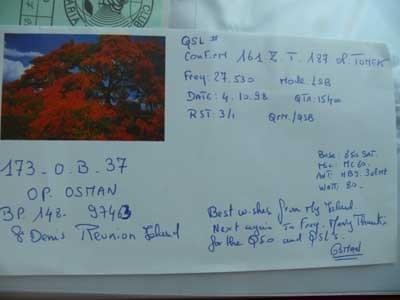 CLUB
QSL #
Confirm 161 Z.T. 187 OP. TOMEK
Freq: 27.530 Mode: LSB
DATE: 4.10.98 QTR: 15400
RST: 3/1 QRM/QSB
173-O.B-37
OP. OSMAN
BP. 148- 97463
St Denis Reunion Island
Base: 650 SAT.
Mic: MC60.
Watt: 80-
Best wishes from My Island.
Next again in Freq. Many Thanks
for the QSO and QSL's.
OSMAN